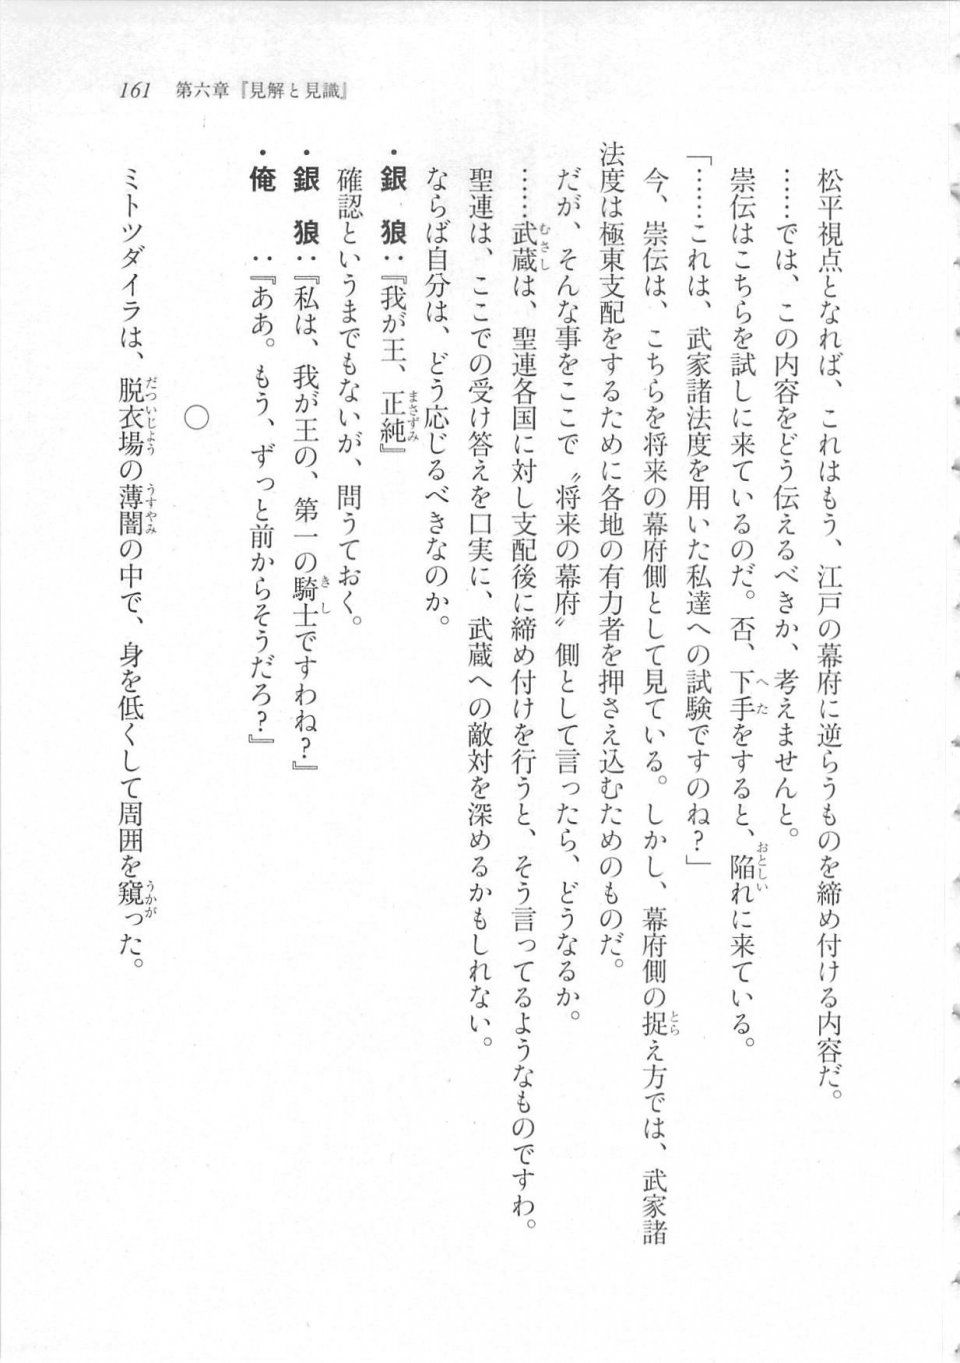 161 第六章『見解と見識』
松平視点となれば、これはもう、江戸の幕府に逆らうものを締め付ける内容だ。
……では、この内容をどう伝えるべきか、考えませんと。
崇伝はこちらを試しに来ているのだ。否、下手をすると、陥れに来ている。
「……これは、武家諸法度を用いた私達への試験ですのね？」
今、崇伝は、こちらを将来の幕府側として見ている。しかし、幕府側の捉え方では、武家諸
法度は極東支配をするために各地の有力者を押さえ込むためのものだ。
だが、そんな事をここで〝将来の幕府〟側として言ったら、どうなるか。
……武蔵は、聖連各国に対し支配後に締め付けを行うと、そう言ってるようなものですわ。
聖連は、ここでの受け答えを口実に、武蔵への敵対を深めるかもしれない。
ならば自分は、どう応じるべきなのか。
・銀　狼：『我が王、正純』
確認というまでもないが、問うておく。
・銀　狼：『私は、我が王の、第一の騎士ですわね？』
・俺　　：『ああ。もう、ずっと前からそうだろ？』
○
ミトツダイラは、脱衣場の薄闇の中で、身を低くして周囲を窺った。